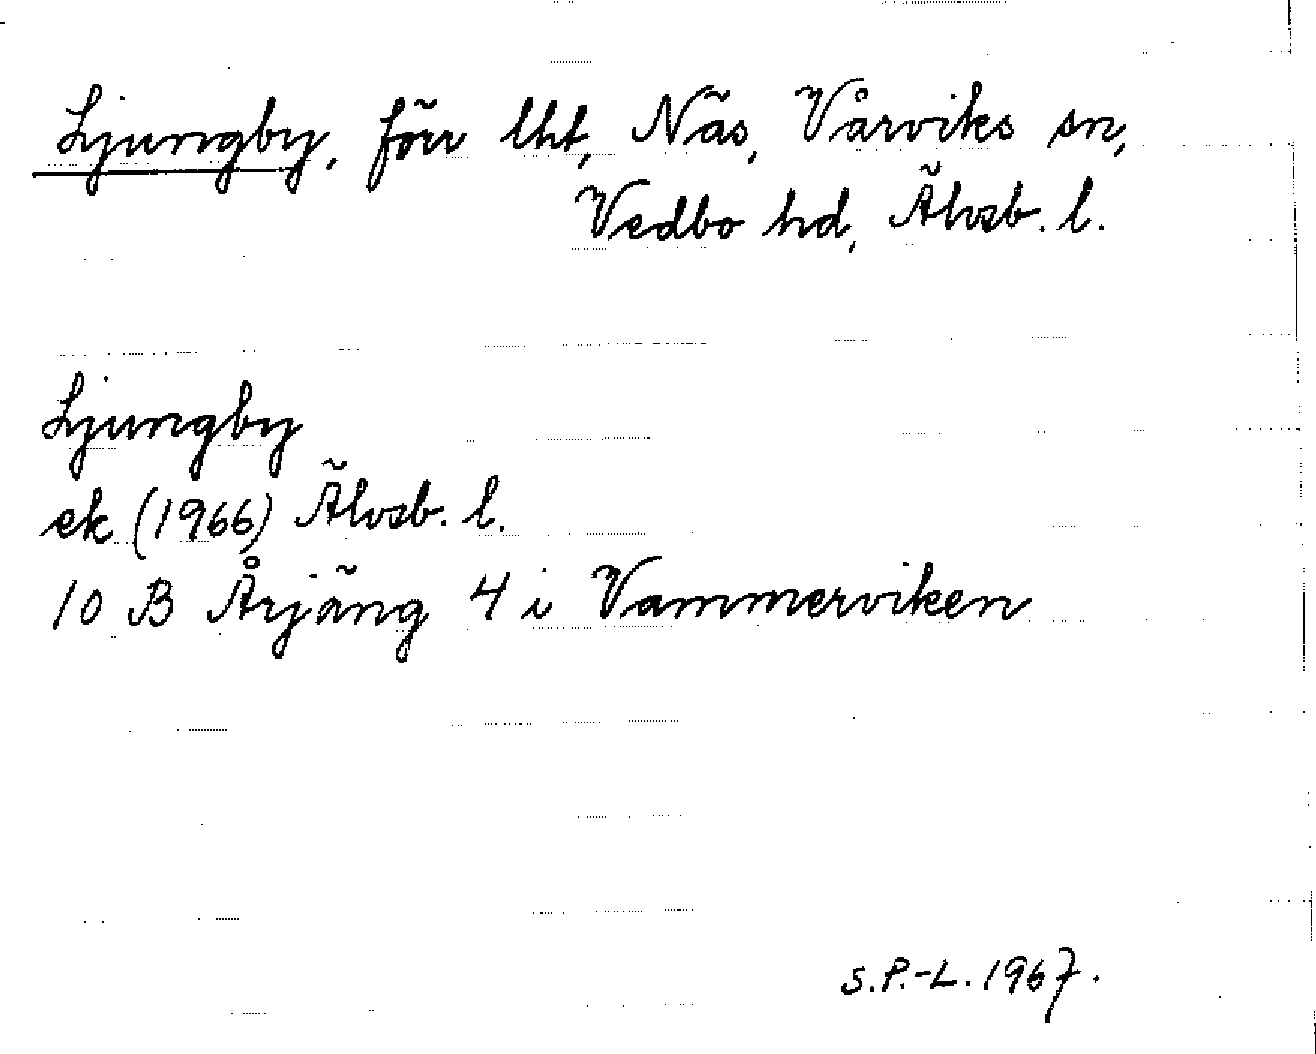 Ljungby, förr lht, Näs, Vårviks sn,
Vedbo hd, Älvsb. l.
Ljungby
ek (1966) Älvsb. l.
10 B Årjäng 4 i Vammerviken
S.P.-L. 1967.